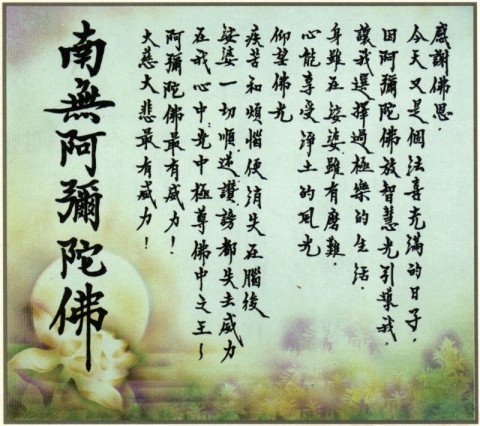 感謝佛恩.
今天又是個法喜充滿的日子,
因阿彌陀佛放智慧光引導我.
讓我選擇過極樂的生活.
身雖在娑婆雖有磨難.
心能享受淨土的風光
仰望佛光
疾苦和煩惱便消失在腦後
娑婆一切順逆讚謗都失去威力
在我心中光中極尊佛中之王~
阿彌陀佛最有威力!
大慈大悲最有威力!
南無阿彌陀佛